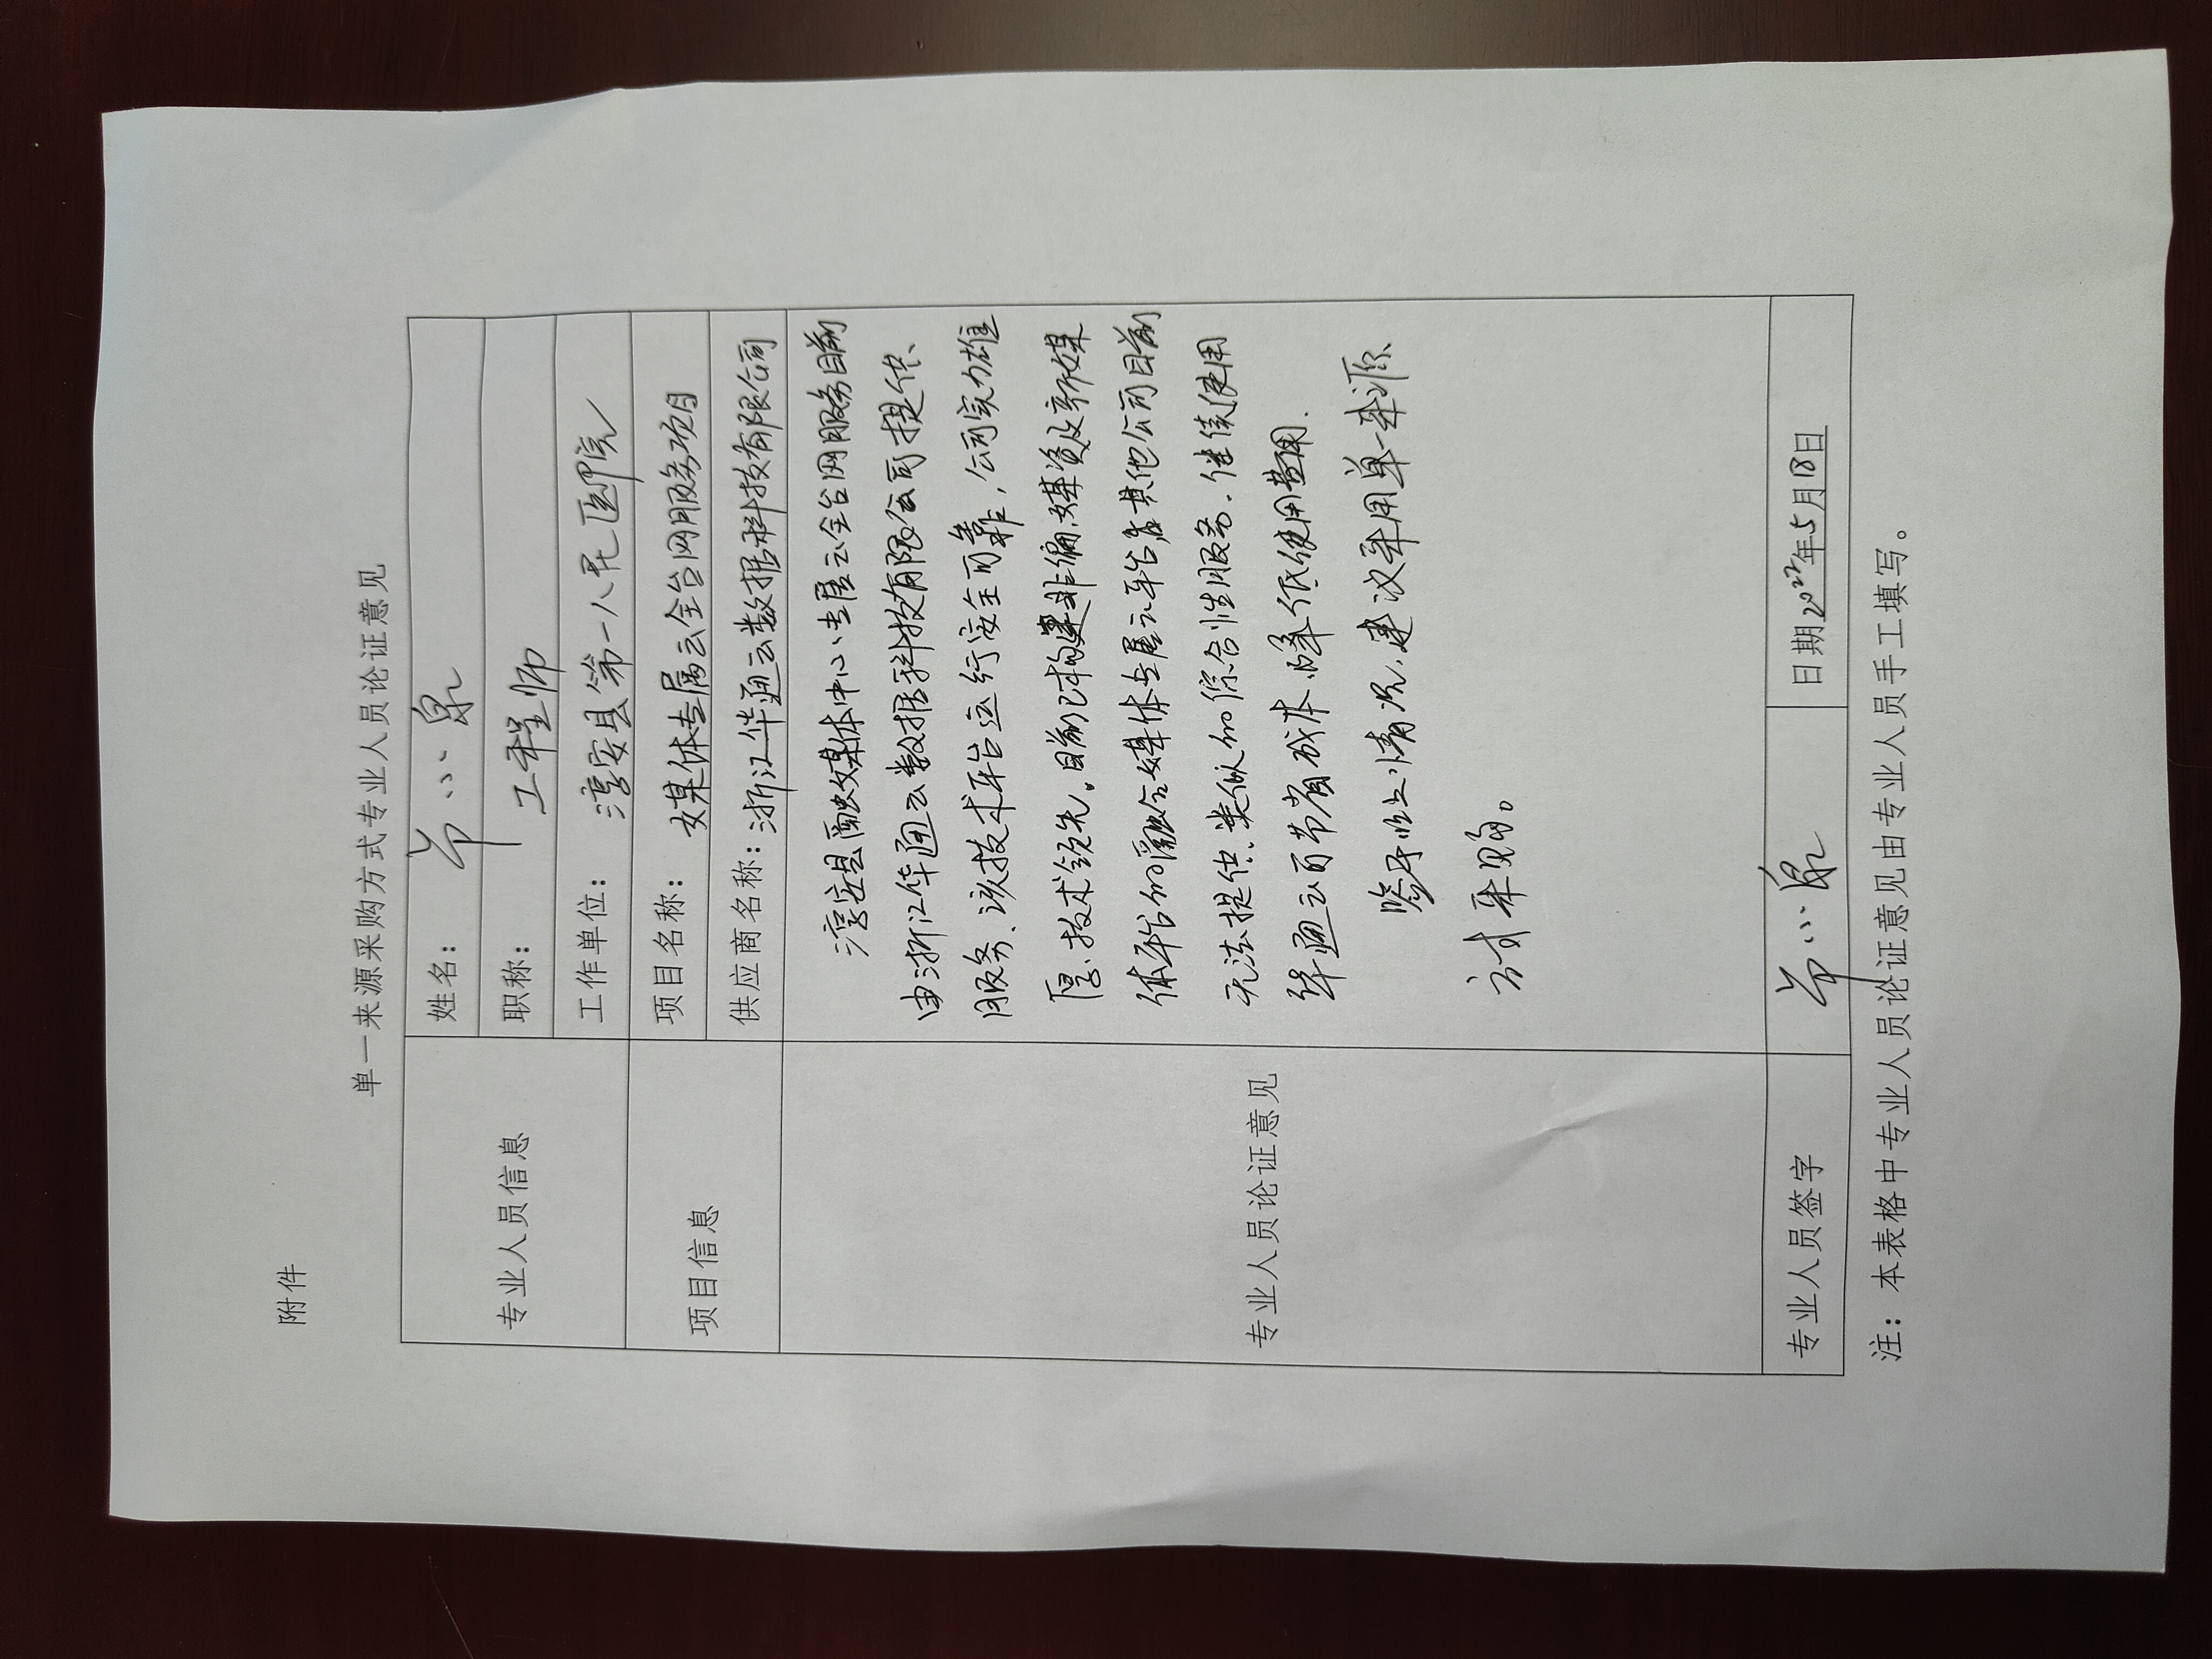 附件
单一来源采购方式专业人员论证意见
专业人员信息
姓名： 小泉
职称： 工程师
工作单位： 淳安县第一人民医院
项目信息
项目名称： 媒体专属云全台网服务项目
供应商名称：浙江华通云数据科技有限公司
专业人员论证意见
淳安县融媒体中心专属云全台网服务目前
由浙江华通云数据科技有限公司提供、
服务、该技术平台运行安全可靠，公司实力雄
厚、技术领先。目前已构建非编、媒资及新媒
体平台的融合媒体专属云平台,其他公司目前
无法提供、类似的综合性服务、继续使用
华通云可节省成本、降低使用费用.
鉴于以上情况、建议采用单一来源
方式采购。
专业人员签字
小泉
日期2022年5月18日
注：本表格中专业人员论证意见由专业人员手工填写。